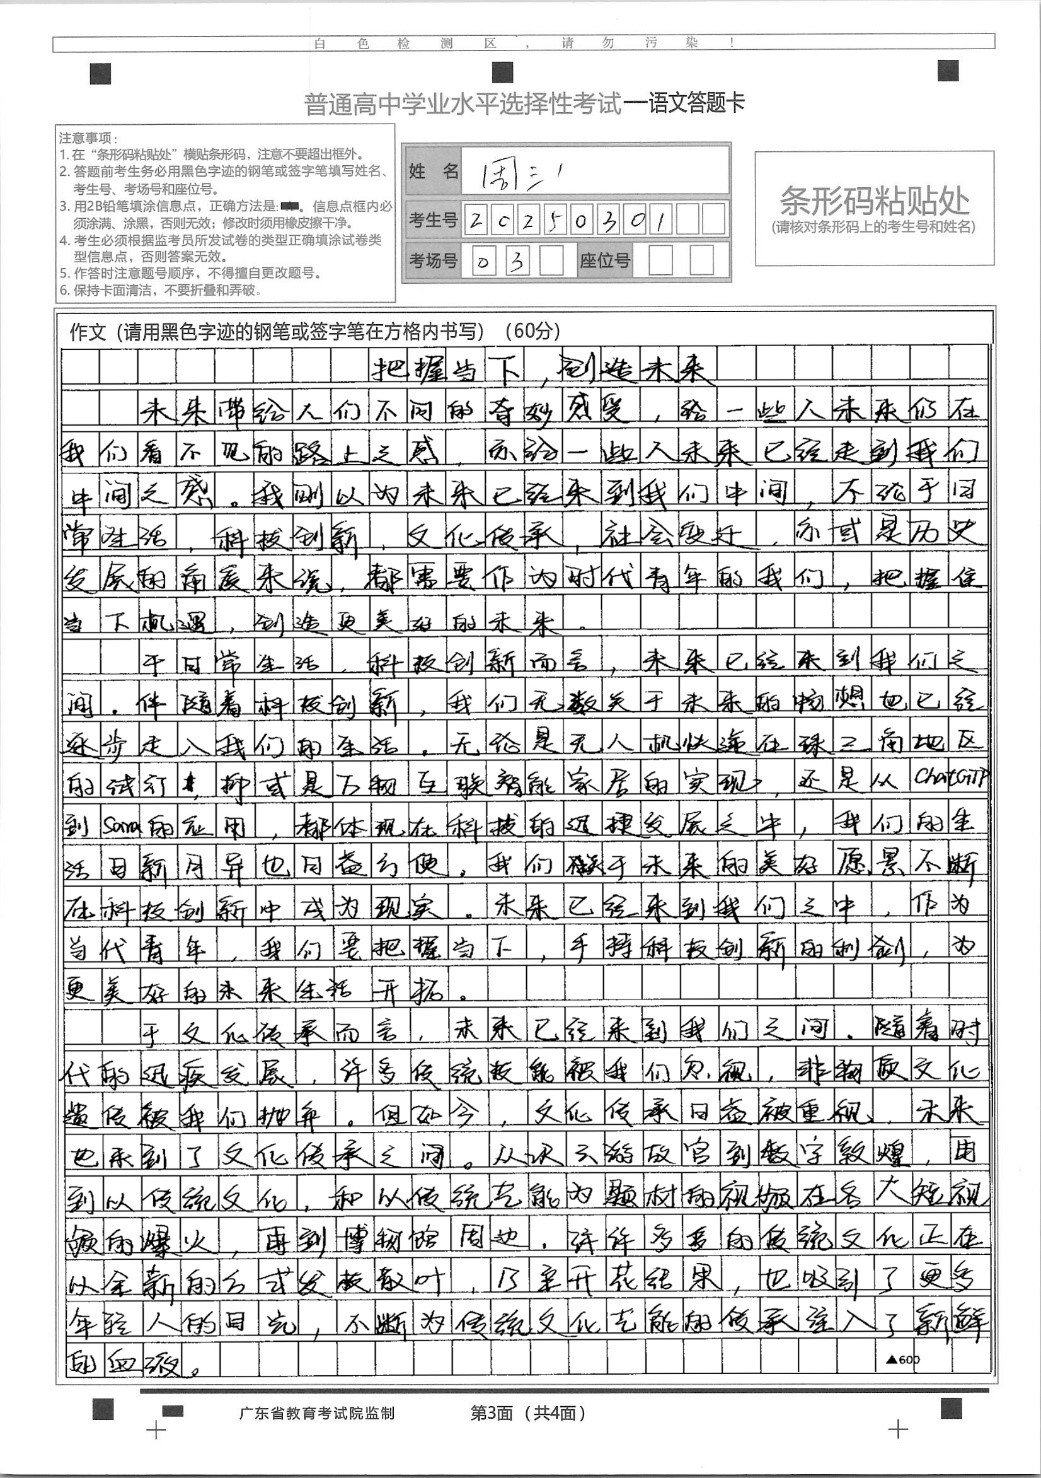 白色检测区,请勿污染!
普通高中学业水平选择性考试—语文答题卡
注意事项:
1. 在“条形码粘贴处”横贴条形码,注意不要超出框外。
2. 答题前考生务必用黑色字迹的钢笔或签字笔填写姓名、
考生号、考场号和座位号。
3. 用2B铅笔填涂信息点,正确方法是: 。信息点框内必
须涂满、涂黑,否则无效;修改时须用橡皮擦干净。
4. 考生必须根据监考员所发试卷的类型正确填涂试卷类
型信息点,否则答案无效。
5. 作答时注意题号顺序,不得擅自更改题号。
6. 保持卡面清洁,不要折叠和弄破。
姓 名 周三1
考生号 20250301
考场号 03 座位号
条形码粘贴处
(请核对条形码上的考生号和姓名)
作文(请用黑色字迹的钢笔或签字笔在方格内书写)(60分)
把握当下,创造未来
未来带给人们不同的奇妙感受,给一些人未来仍在
我们看不见的路上之感,亦给一些人未来已经走到我们
中间之感。我则以为未来已经来到我们中间,不论于日
常生活,科技创新,文化传承,社会变迁,亦或是历史
发展的角度来说,都需要作为时代青年的我们,把握住
当下机遇,创造更美好的未来。
于日常生活,科技创新而言,未来已经来到我们之
间。伴随着科技创新,我们无数关于未来的构想也已经
逐步走入我们的生活。无论是无人机快递在珠三角地区
的试行,抑或是万物互联智能家居的实现,还是从ChatGTP
到Sora的应用,都体现在科技的迅捷发展之中,我们的生
活日新月异也日益方便。我们关于未来的美好愿景不断
在科技创新中成为现实。未来已经来到我们之中,作为
当代青年,我们要把握当下,手持科技创新的利剑,为
更美好的未来生活开拓。
于文化传承而言,未来已经来到我们之间。随着时
代的迅疾发展,许多传统技能被我们忽视,非物质文化
遗传被我们抛弃。但如今,文化传承日益被重视,未来
也来到了文化传承之间。从云游故宫到数字敦煌,再
到以传统文化,和以传统艺能为题材的视频在各大短视
频的爆火,再到博物馆周边,许许多多的传统文化正在
以全新的方式发枝散叶,乃至开花结果,也吸引了更多
年轻人的目光,不断为传统文化艺能的传承注入了新鲜
的血液。
▲600
广东省教育考试院监制 第3面(共4面)